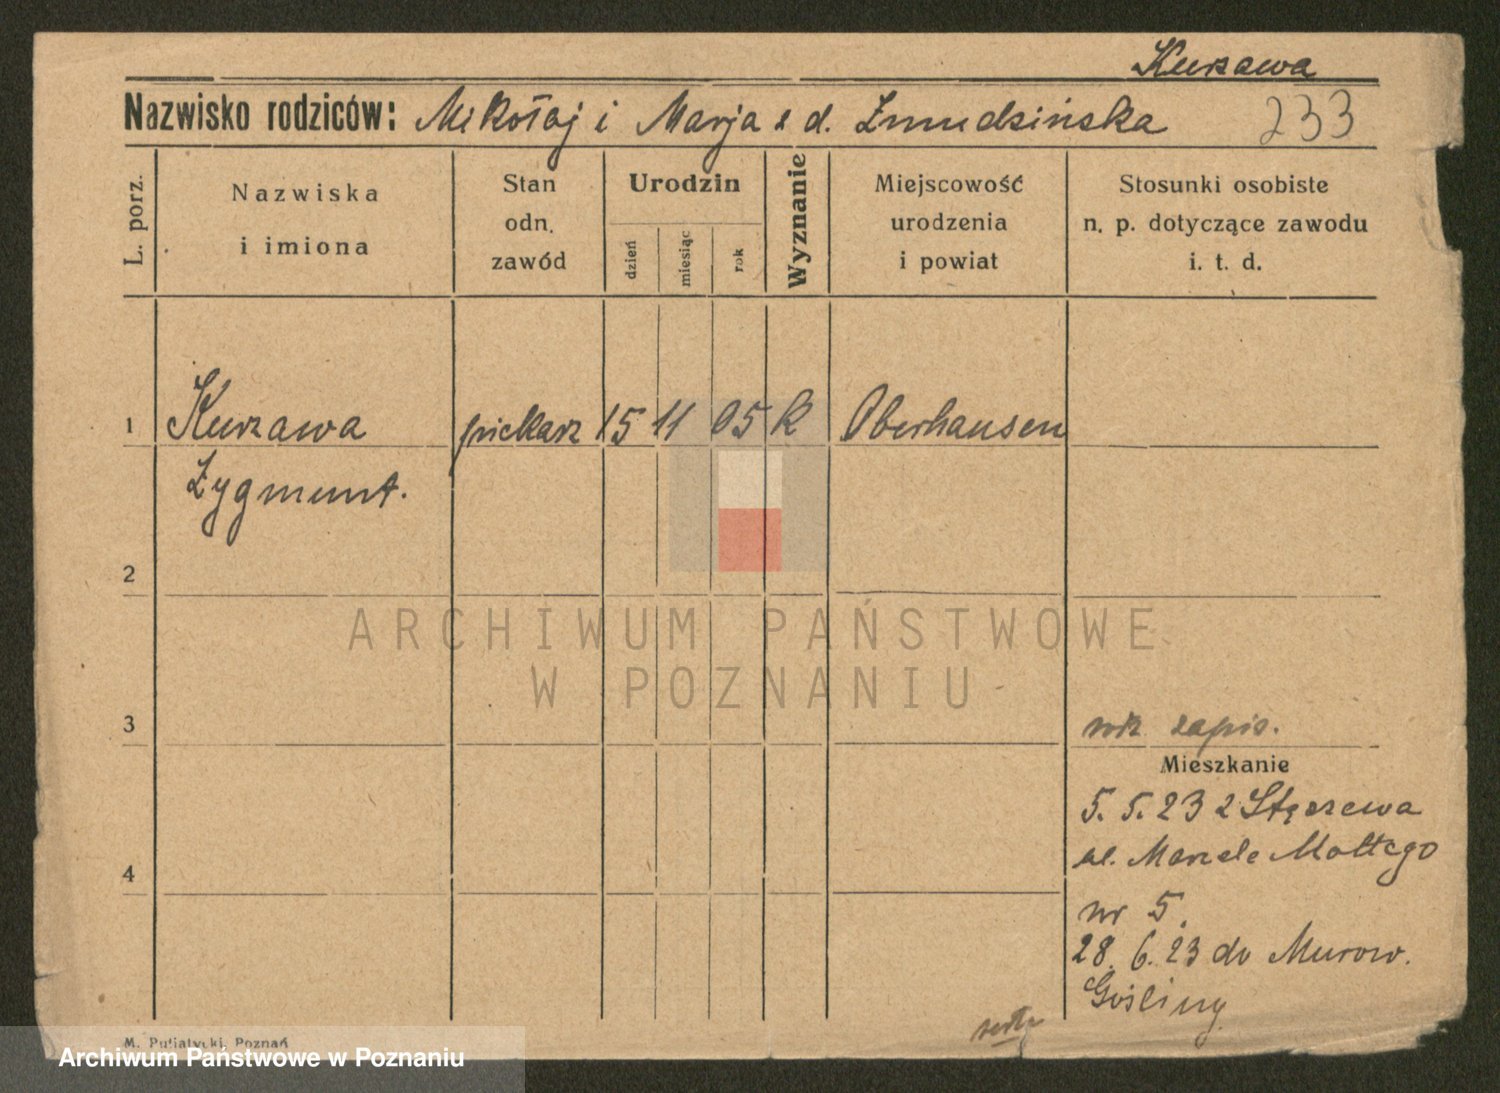 Kurzawa
Nazwisko rodziców: Mikołaj i Marja z d. Żmudzińska
233
L. porz.
Nazwiska
i imiona
Stan
odn.
zawód
Urodzin
dzień
miesiąc
rok
Wyznanie
Miejscowość
urodzenia
i powiat
Stosunki osobiste
n. p. dotyczące zawodu
i. t. d.
1 Kurzawa piekarz 15 11 05 k Oberhausen
Zygmunt.
2
ARCHIWUM PAŃSTWOWE
W POZNANIU
3
zapis.
Mieszkanie
5. 5. 23 z Stęszewa
ul. Marsz
nr 5.
4
28. 6. 23 do Murow.
Gośliny
M. Putiatycki, Poznań
Archiwum Państwowe w Poznaniu